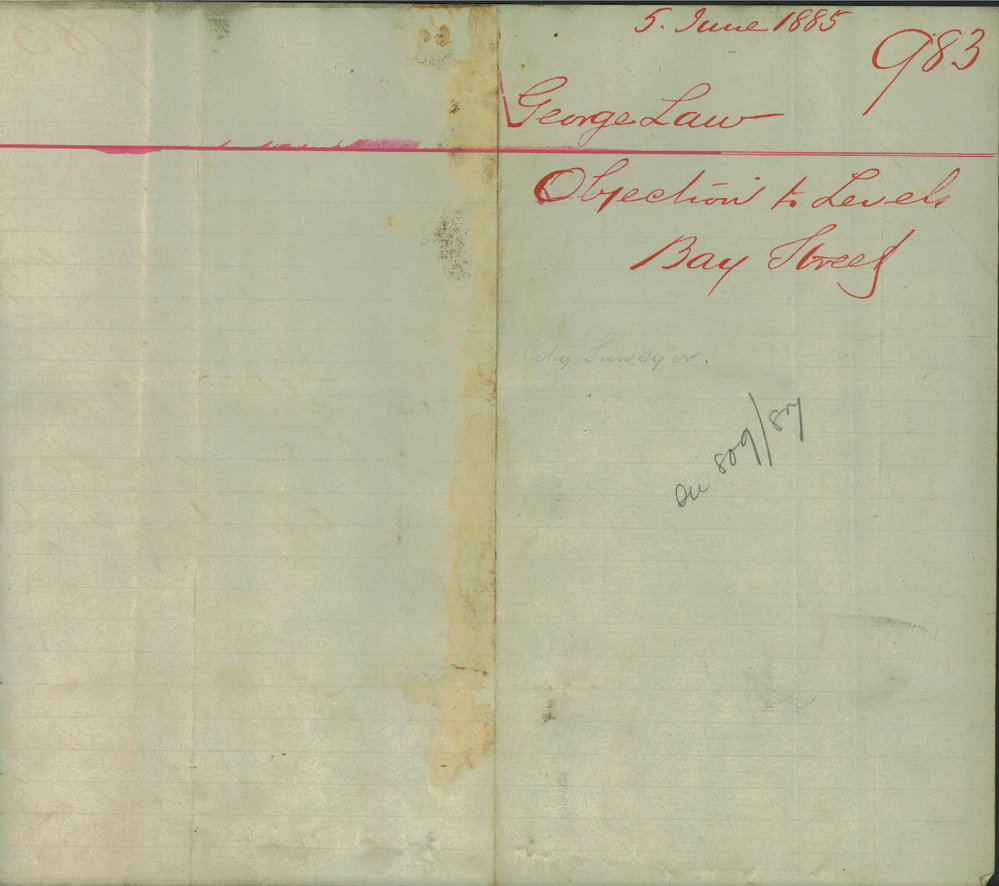 5. June 1885
983
George Law
Objection to Levels
Bay Street
City Surveyor.
809/87